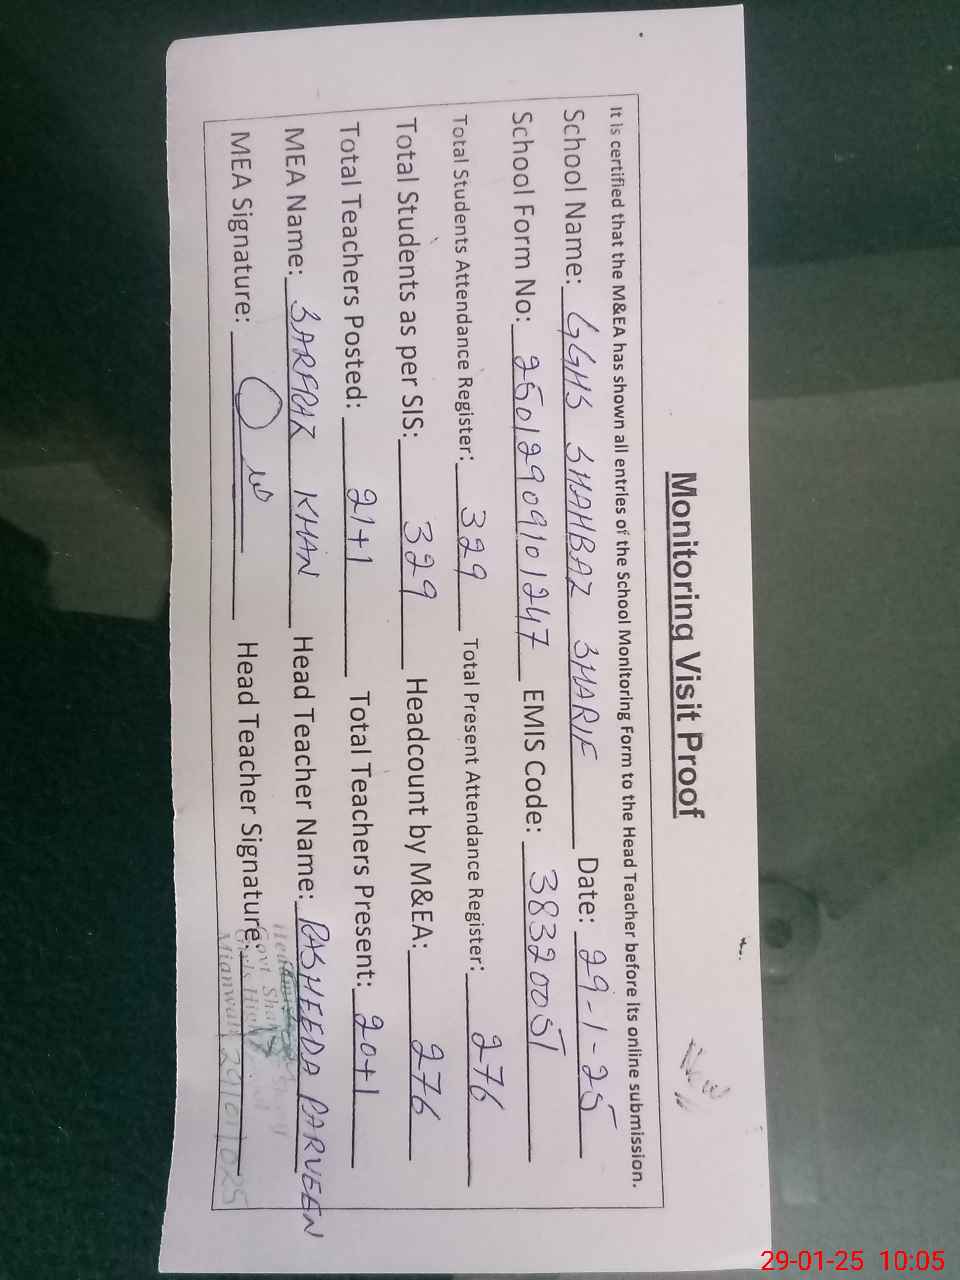 Monitoring Visit Proof
It is certified that the M&EA has shown all entries of the School Monitoring Form to the Head Teacher before its online submission.
School Name: GGHS SHAHBAZ SHARIF Date: 29-1-25
School Form No: 25012909101247 EMIS Code: 38320051
Total Students Attendance Register: 329 Total Present Attendance Register: 276
Total Students as per SIS: 329 Headcount by M&EA: 276
Total Teachers Posted: 21+1 Total Teachers Present: 20+1
MEA Name: SARFRAZ KHAN Head Teacher Name: RASHEEDA PARVEEN
MEA Signature: Head Teacher Signature:
Govt Shahbaz Sharif
Girls High
Mianwali
29-01-25 10:05